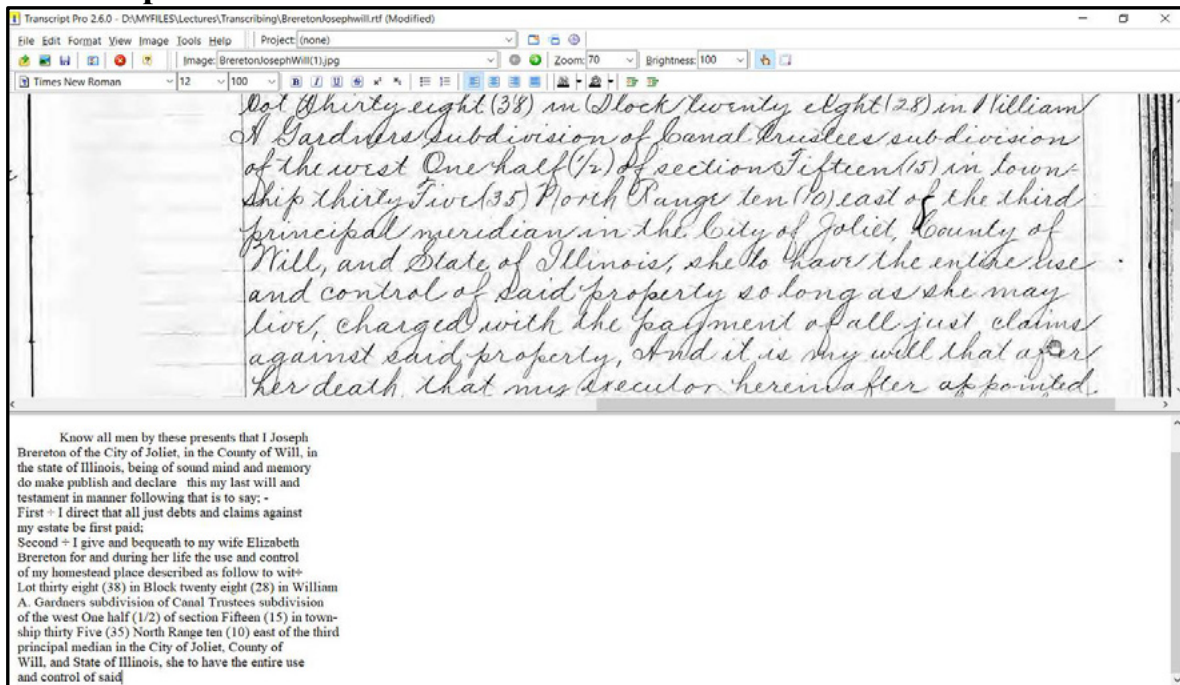 Transcript Pro 2.6.0 - D:\MYFILES\Lectures\Transcribing\BreretonJosephwill.rtf (Modified)
File Edit Format View Image Tools Help Project: (none)
Image: BreretonJosephWill(1).jpg Zoom: 70 Brightness: 100
Times New Roman 12 100 B I U S x² x₂
Lot Thirty eight (38) in Block twenty eight (28) in William
A Gardners subdivision of Canal Trustees subdivision
of the west One half (1/2) of section Fifteen (15) in town-
ship thirty Five (35) North Range ten (10) east of the third
principal meridian in the City of Joliet, County of
Will, and State of Illinois, she to have the entire use
and control of said property so long as she may
live, charged with the payment of all just claims
against said property, And it is my will that after
her death that my executor hereinafter appointed
Know all men by these presents that I Joseph
Brereton of the City of Joliet, in the County of Will, in
the state of Illinois, being of sound mind and memory
do make publish and declare this my last will and
testament in manner following that is to say; -
First ÷ I direct that all just debts and claims against
my estate be first paid;
Second ÷ I give and bequeath to my wife Elizabeth
Brereton for and during her life the use and control
of my homestead place described as follow to wit÷
Lot thirty eight (38) in Block twenty eight (28) in William
A. Gardners subdivision of Canal Trustees subdivision
of the west One half (1/2) of section Fifteen (15) in town-
ship thirty Five (35) North Range ten (10) east of the third
principal median in the City of Joliet, County of
Will, and State of Illinois, she to have the entire use
and control of said